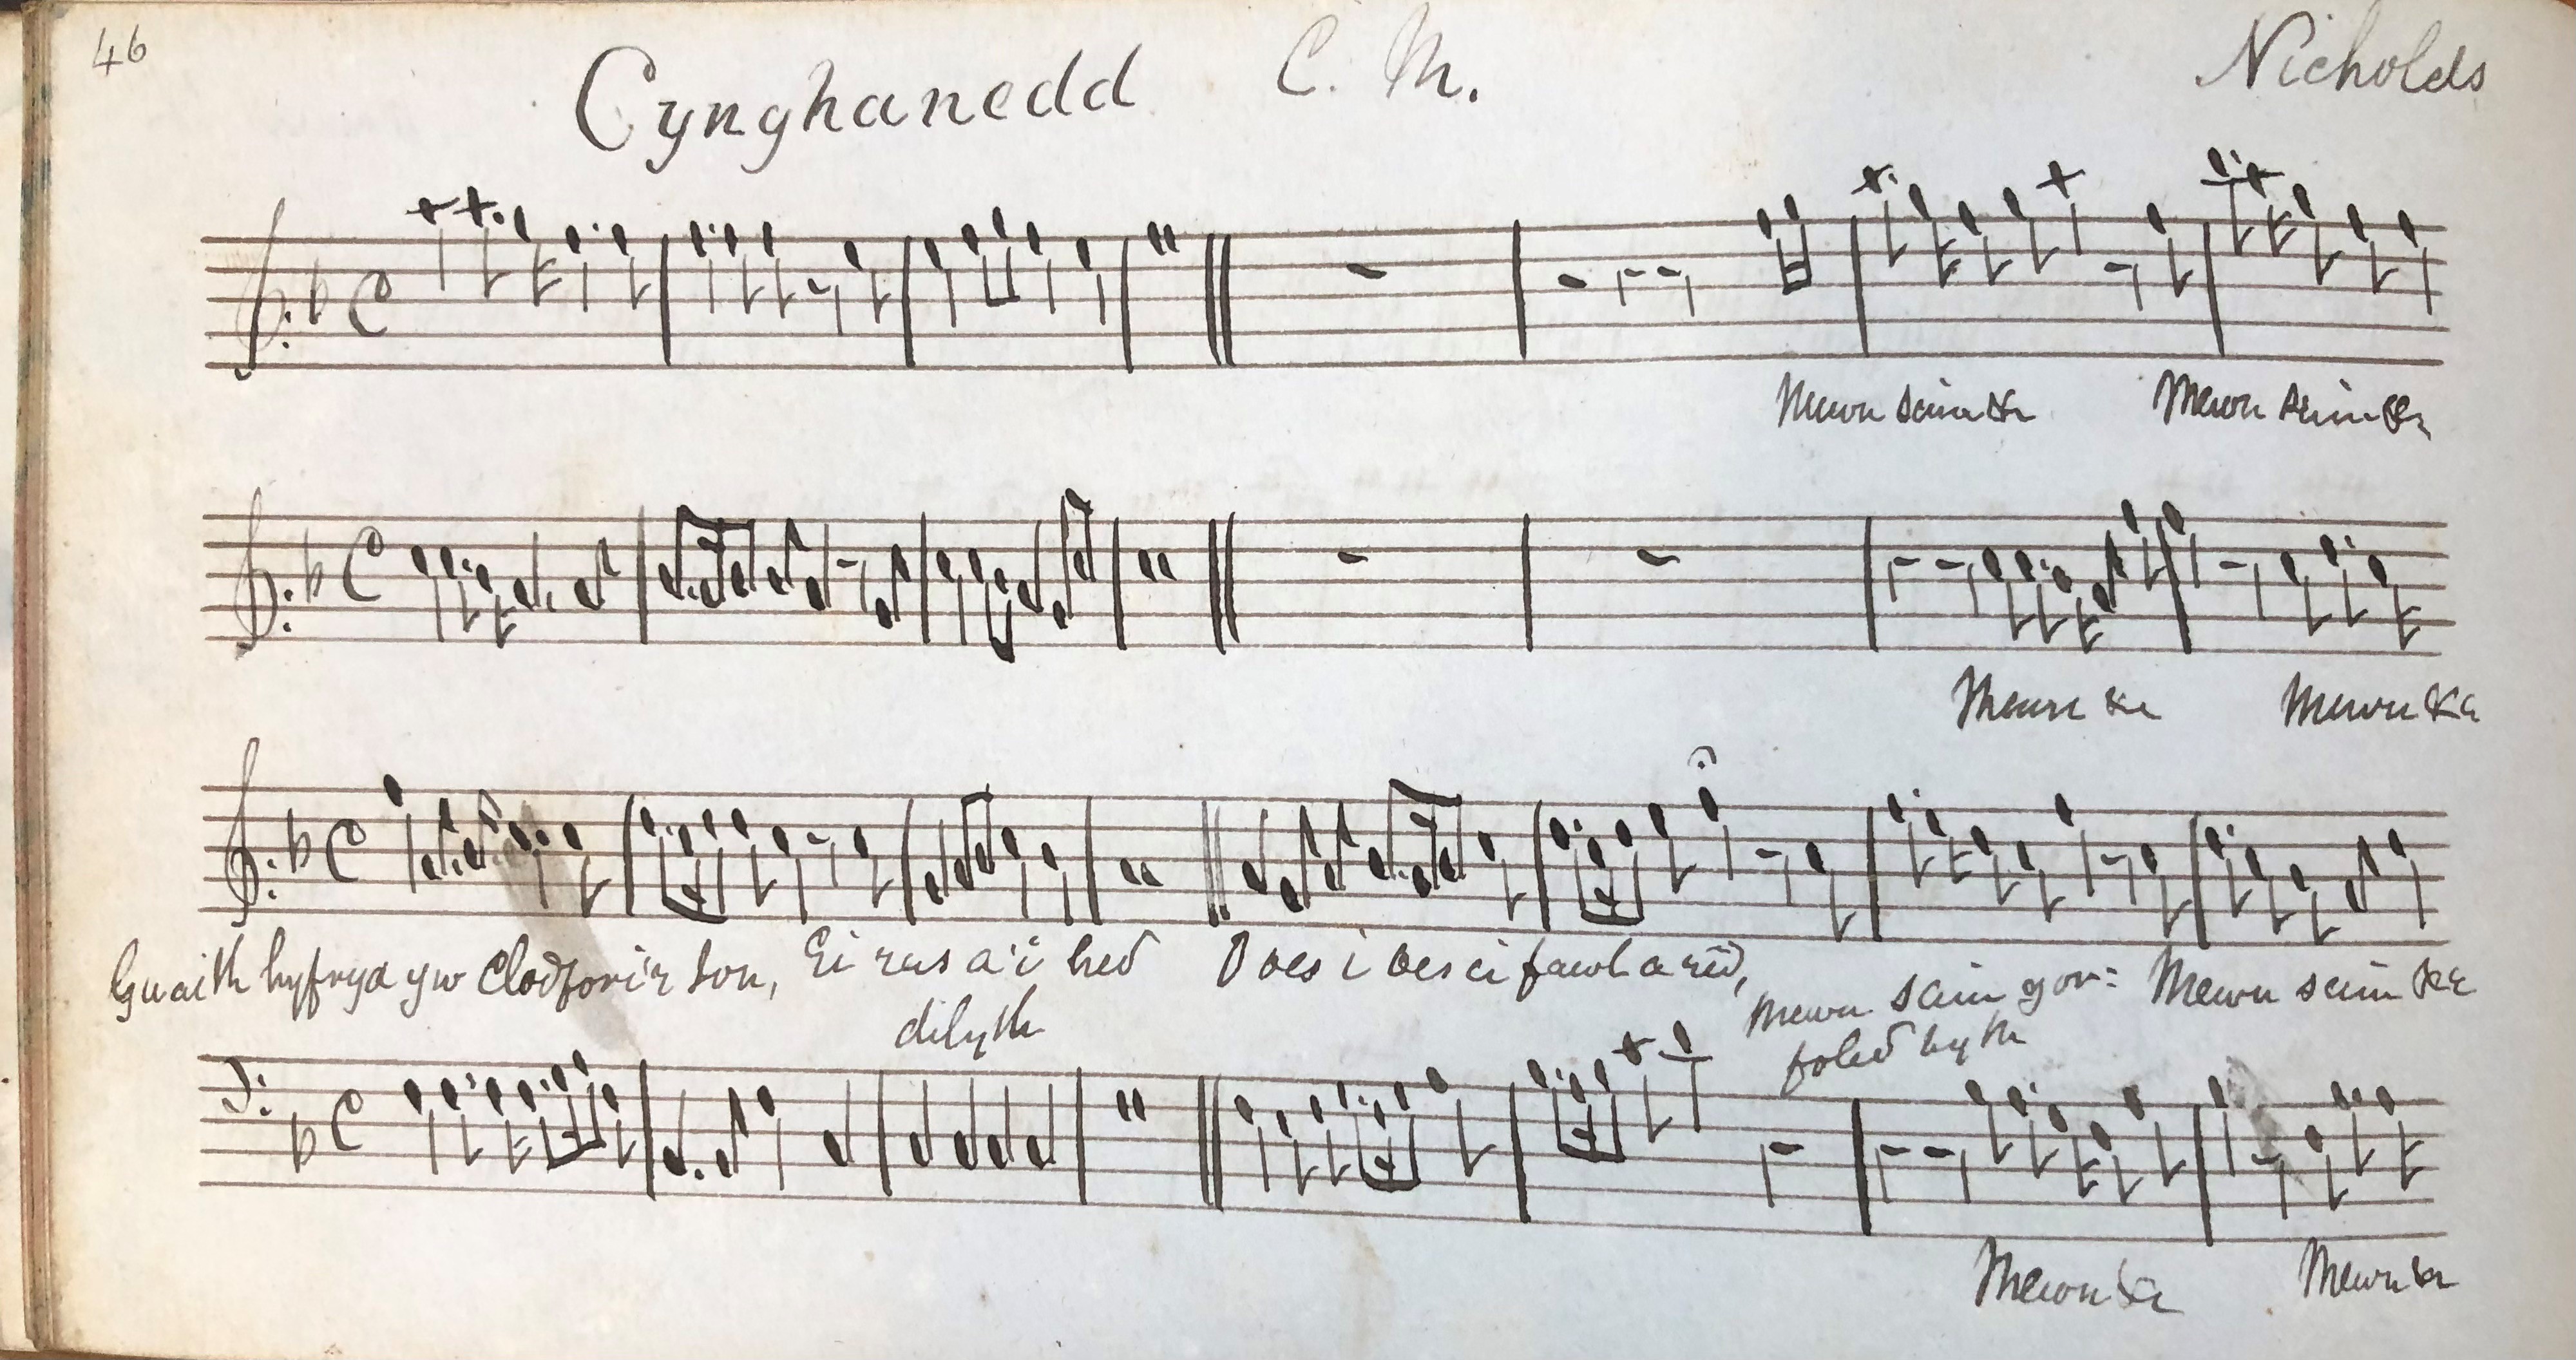 46
Cynghanedd C. M. Nicholds
Mewn sain &c Mewn sain &c
Mewn &c Mewn &c
Gwaith hyfryd yw Clodfori'r Ion, Ei ras a'i hed O oes i oes ei fawl a red,
dilyth Mewn sain gor: Mewn sain &c
foled byth
Mewn &c Mewn &c